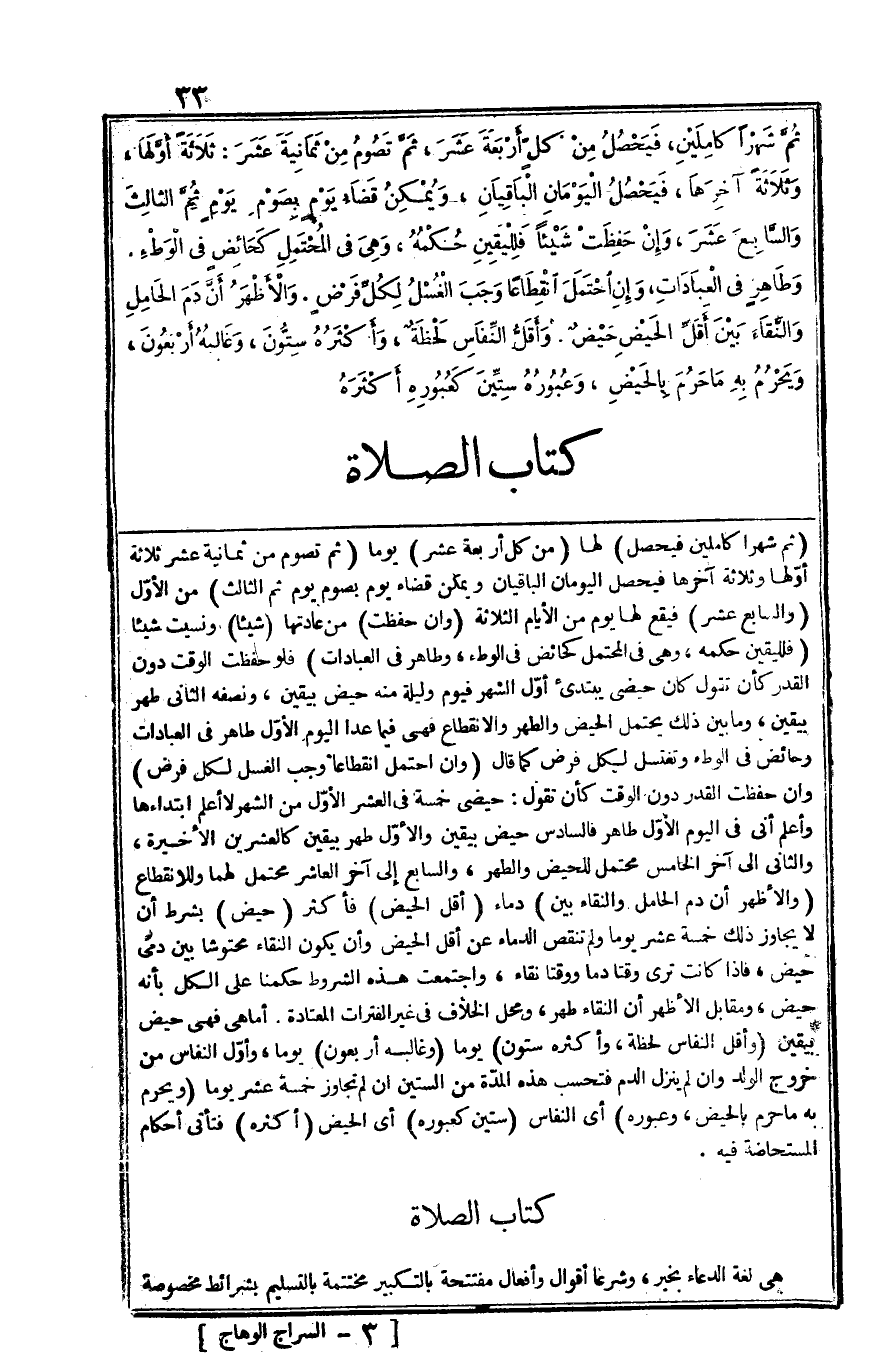 ٣٣
ثُمَّ شَهْرًا كَامِلَيْنِ، فَيَحْصُلُ مِنْ كُلٍّ أَرْبَعَةَ عَشَرَ، ثُمَّ تَصُومُ مِنْ ثَمَانِيَةَ عَشَرَ : ثَلَاثَةً أَوَّلَهَا،
وَثَلَاثَةً آخِرَهَا، فَيَحْصُلُ الْيَوْمَانِ الْبَاقِيَانِ، وَيُمْكِنُ قَضَاءُ يَوْمٍ بِصَوْمِ يَوْمٍ ثُمَّ الثَالِثَ
وَالسَّابِعَ عَشَرَ، وَإِنْ حَفِظَتْ شَيْئًا فَلِلْيَقِينِ حُكْمُهُ، وَهِىَ فِى الْمُحْتَمِلِ كَحَائِضٍ فِى الْوَطْءِ.
وَطَاهِرٍ فِى الْعِبَادَاتِ، وَإِنِ احْتَمَلَ انْقِطَاعًا وَجَبَ الْغُسْلُ لِكُلِّ فَرْضٍ. وَالْأَظْهَرُ أَنَّ دَمَ الْحَامِلِ
وَالنَّقَاءَ بَيْنَ أَقَلِّ الْحَيْضِ حَيْضٌ. وَأَقَلُّ النِّفَاسِ لَحْظَةٌ، وَأَكْثَرُهُ سِتُّونَ، وَغَالِبُهُ أَرْبَعُونَ،
وَيَحْرُمُ بِهِ مَاحَرُمَ بِالْحَيْضِ، وَعُبُورُهُ سِتِّينَ كَعُبُورِهِ أَكْثَرَهُ
كتاب الصلاة
(ثم شهرا كاملين فيحصل) لها (من كل أربعة عشر) يوما (ثم تصوم من ثمانية عشر ثلاثة
أولها وثلاثة آخرها فيحصل اليومان الباقيان ويمكن قضاء يوم بصوم يوم ثم الثالث) من الأوّل
(والسابع عشر) فيقع لها يوم من الأيام الثلاثة (وان حفظت) من عادتها (شيئا) ونسيت شيئا
(فلليقين حكمه، وهى فى المحتمل كحائض فى الوطء، وطاهر فى العبادات) فلو حفظت الوقت دون
القدر كأن تقول كان حيضى يبتدئ أوّل الشهر فيوم وليلة منه حيض بيقين، ونصفه الثانى طهر
بيقين، وما بين ذلك يحتمل الحيض والطهر والانقطاع فهى فيما عدا اليوم الأوّل طاهر فى العبادات
وحائض فى الوطء وتغتسل لكل فرض كما قال (وان احتمل انقطاعا وجب الغسل لكل فرض)
وان حفظت القدر دون الوقت كأن تقول : حيضى خمسة فى العشر الأوّل من الشهر لا أعلم ابتداءها
وأعلم أنى فى اليوم الأوّل طاهر فالسادس حيض بيقين والأوّل طهر بيقين كالعشرين الأخيرة،
والثانى الى آخر الخامس محتمل للحيض والطهر، والسابع إلى آخر العاشر محتمل لهما وللانقطاع
(والأظهر أن دم الحامل والنقاء بين) دماء (أقل الحيض) فأكثر (حيض) بشرط أن
لا يجاوز ذلك خمسة عشر يوما ولم تنقص الدماء عن أقل الحيض وأن يكون النقاء محتوشا بين دمى
حيض، فاذا كانت ترى وقتا دما ووقتا نقاء، واجتمعت هذه الشروط حكمنا على الكل بأنه
حيض، ومقابل الأظهر أن النقاء طهر، ومحل الخلاف فى غير الفترات المعتادة. أما هى فهى حيض
بيقين (وأقل النفاس لحظة، وأكثره ستون) يوما (وغالبه أربعون) يوما، وأوّل النفاس من
خروج الولد وان لم ينزل الدم فتحسب هذه المدّة من الستين ان لم تجاوز خمسة عشر يوما (ويحرم
به ماحرم بالحيض، وعبوره) أى النفاس (ستين كعبوره) أى الحيض (أكثره) فتأتى أحكام
المستحاضة فيه .
كتاب الصلاة
هى لغة الدعاء بخير، وشرعا أقوال وأفعال مفتتحة بالتكبير مختتمة بالتسليم بشرائط مخصوصة
[ ٣ - السراج الوهاج ]